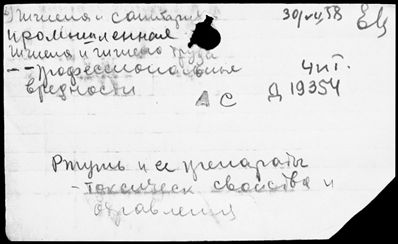 Гигиена и санитария
30/VII,58
промышленная
гигиена и гигиена труда
-- профессиональные
чит.
вредности
А С
Д 19354
Ртуть и ее препараты
- токсическ свойства и
отравления